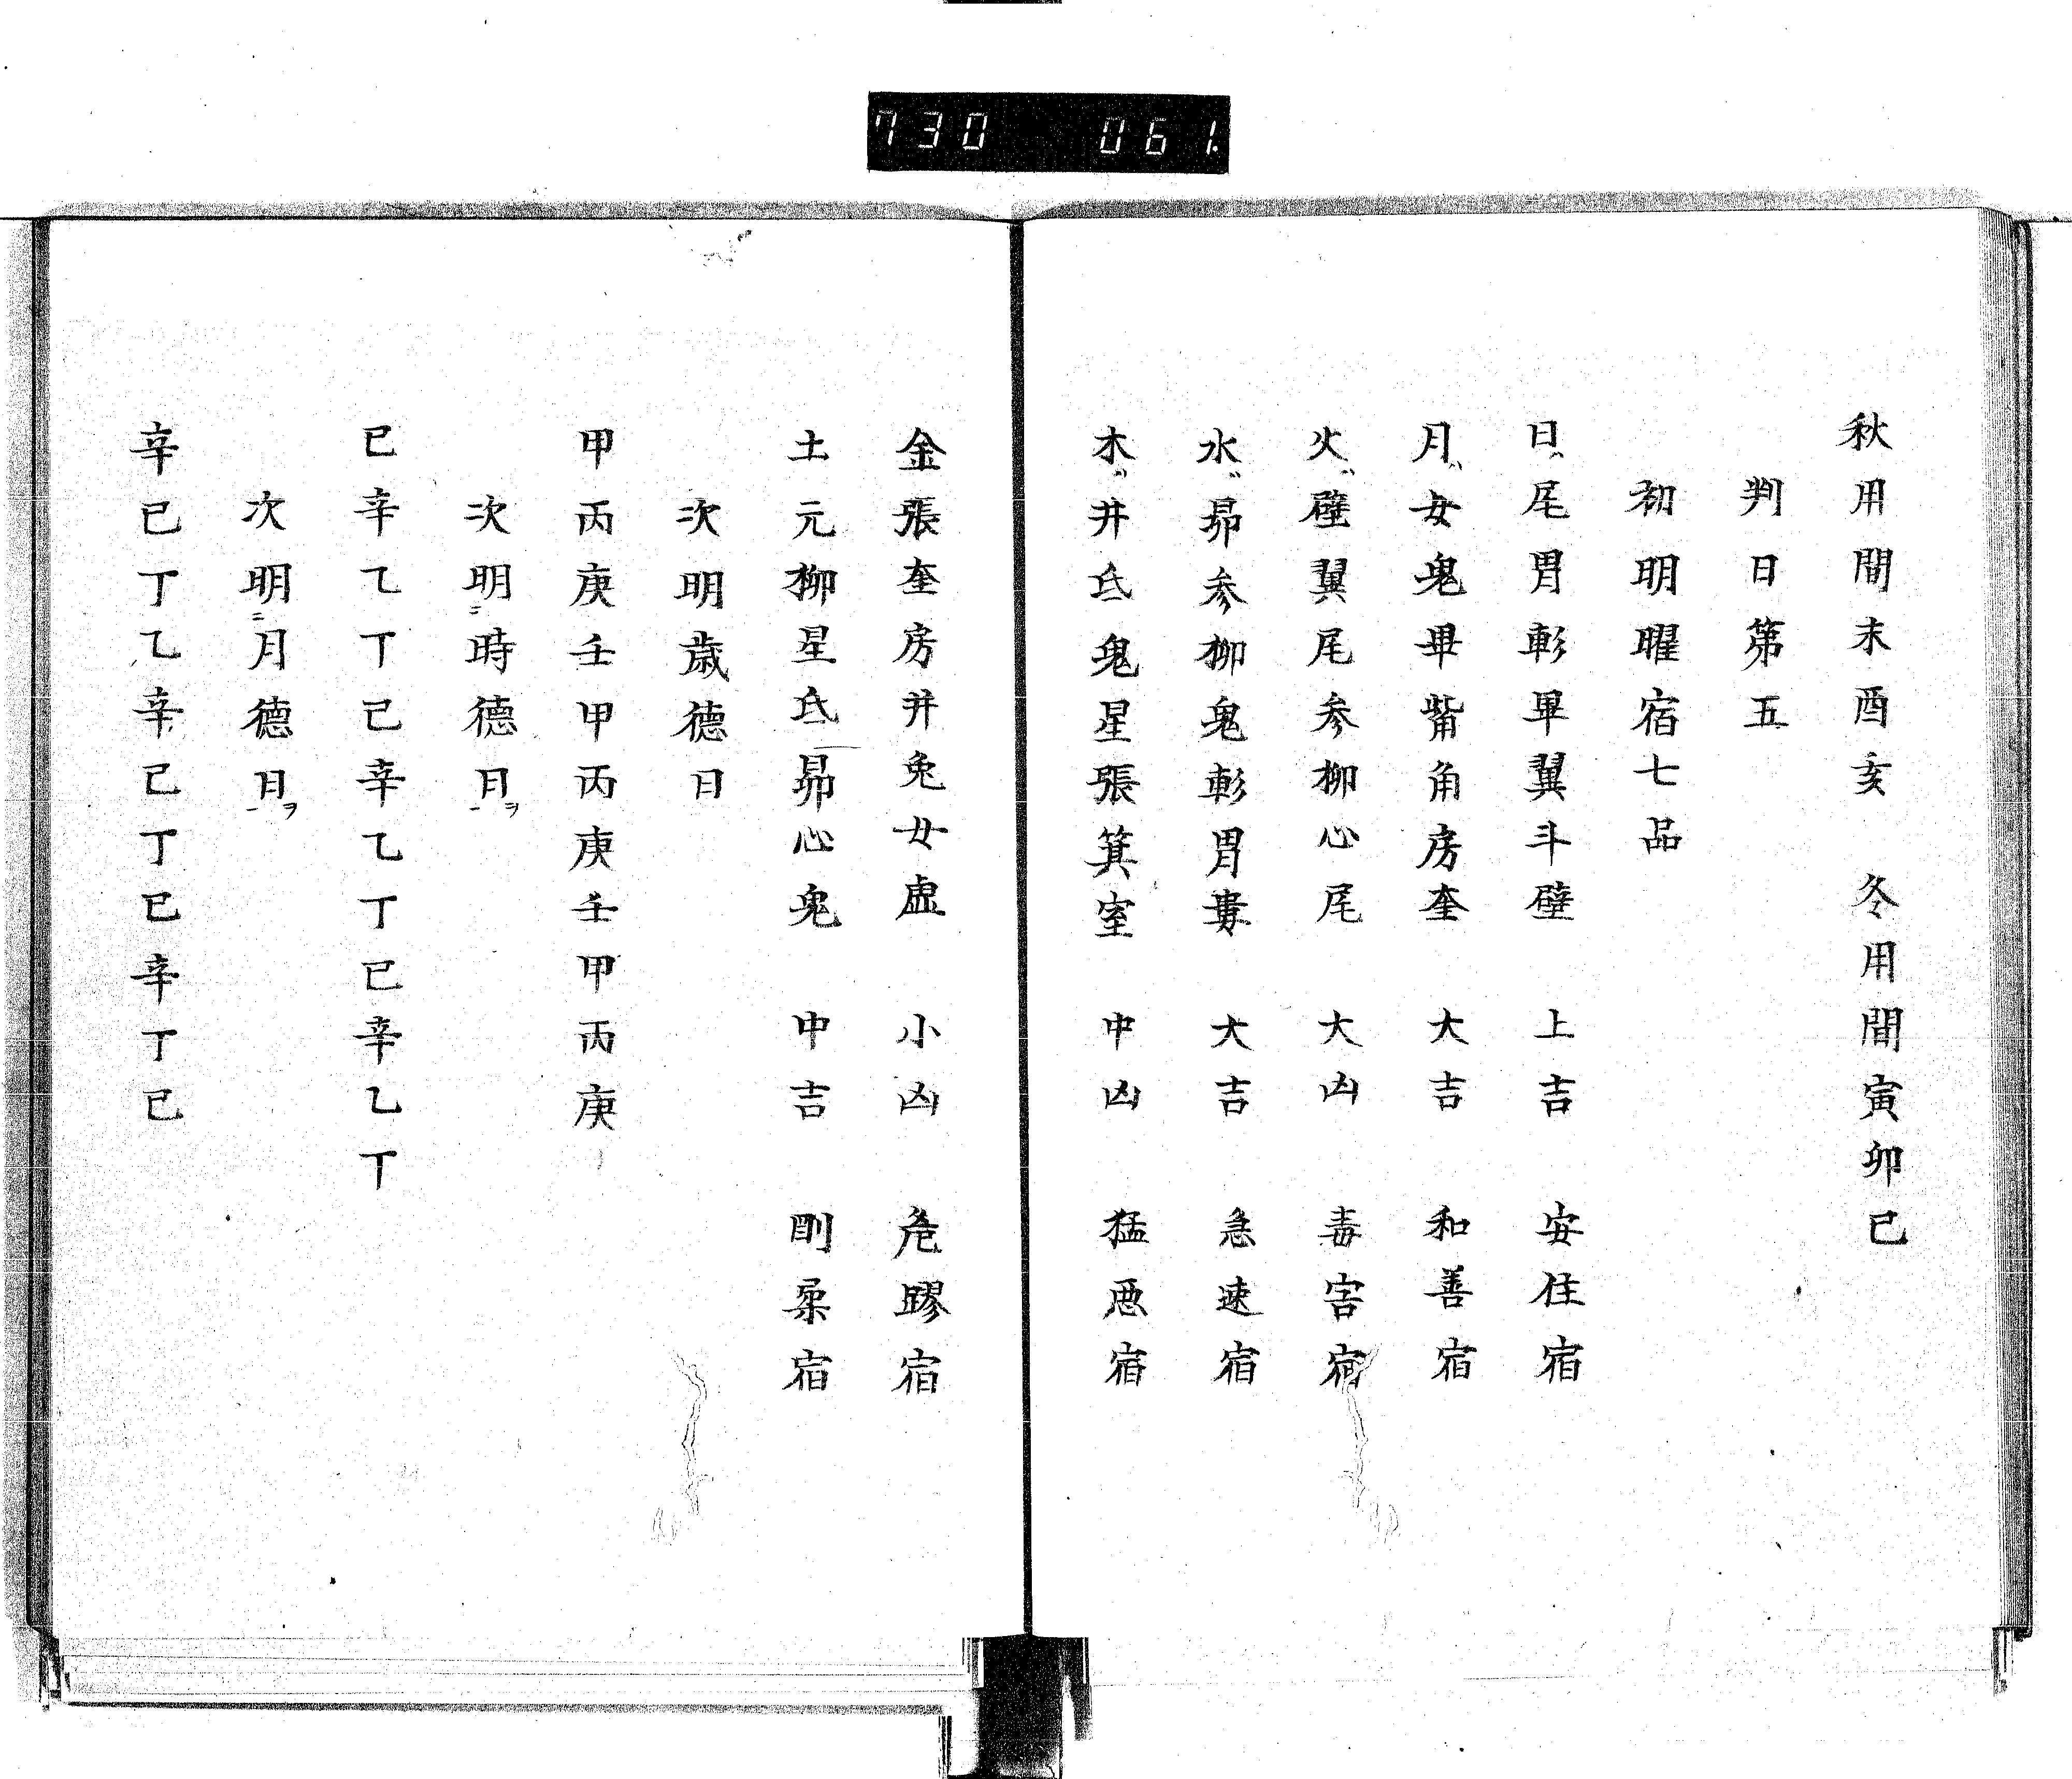 730 061.
秋用間未酉亥 冬用間寅卯己
判日第五
初明曜宿七品
日〻尾胃軫畢翼斗壁 上吉 安住宿
月〻女鬼畢觜角房奎 大吉 和善宿
火〻壁翼尾参柳心尾 大凶 毒害宿
水〻昴参柳鬼軫胃婁 大吉 急速宿
木〻井氐鬼星張箕室 中凶 猛悪宿
金張奎房井兎女虚 小凶 危蹘宿
土元柳星氐昴心鬼 中吉 剛柔宿
次明歳德日
甲丙庚壬甲丙庚壬甲丙庚
次明二時德日一ヲ
己辛乙丁己辛乙丁己辛乙丁
次明二月德日一ヲ
辛己丁乙辛己丁己辛丁己